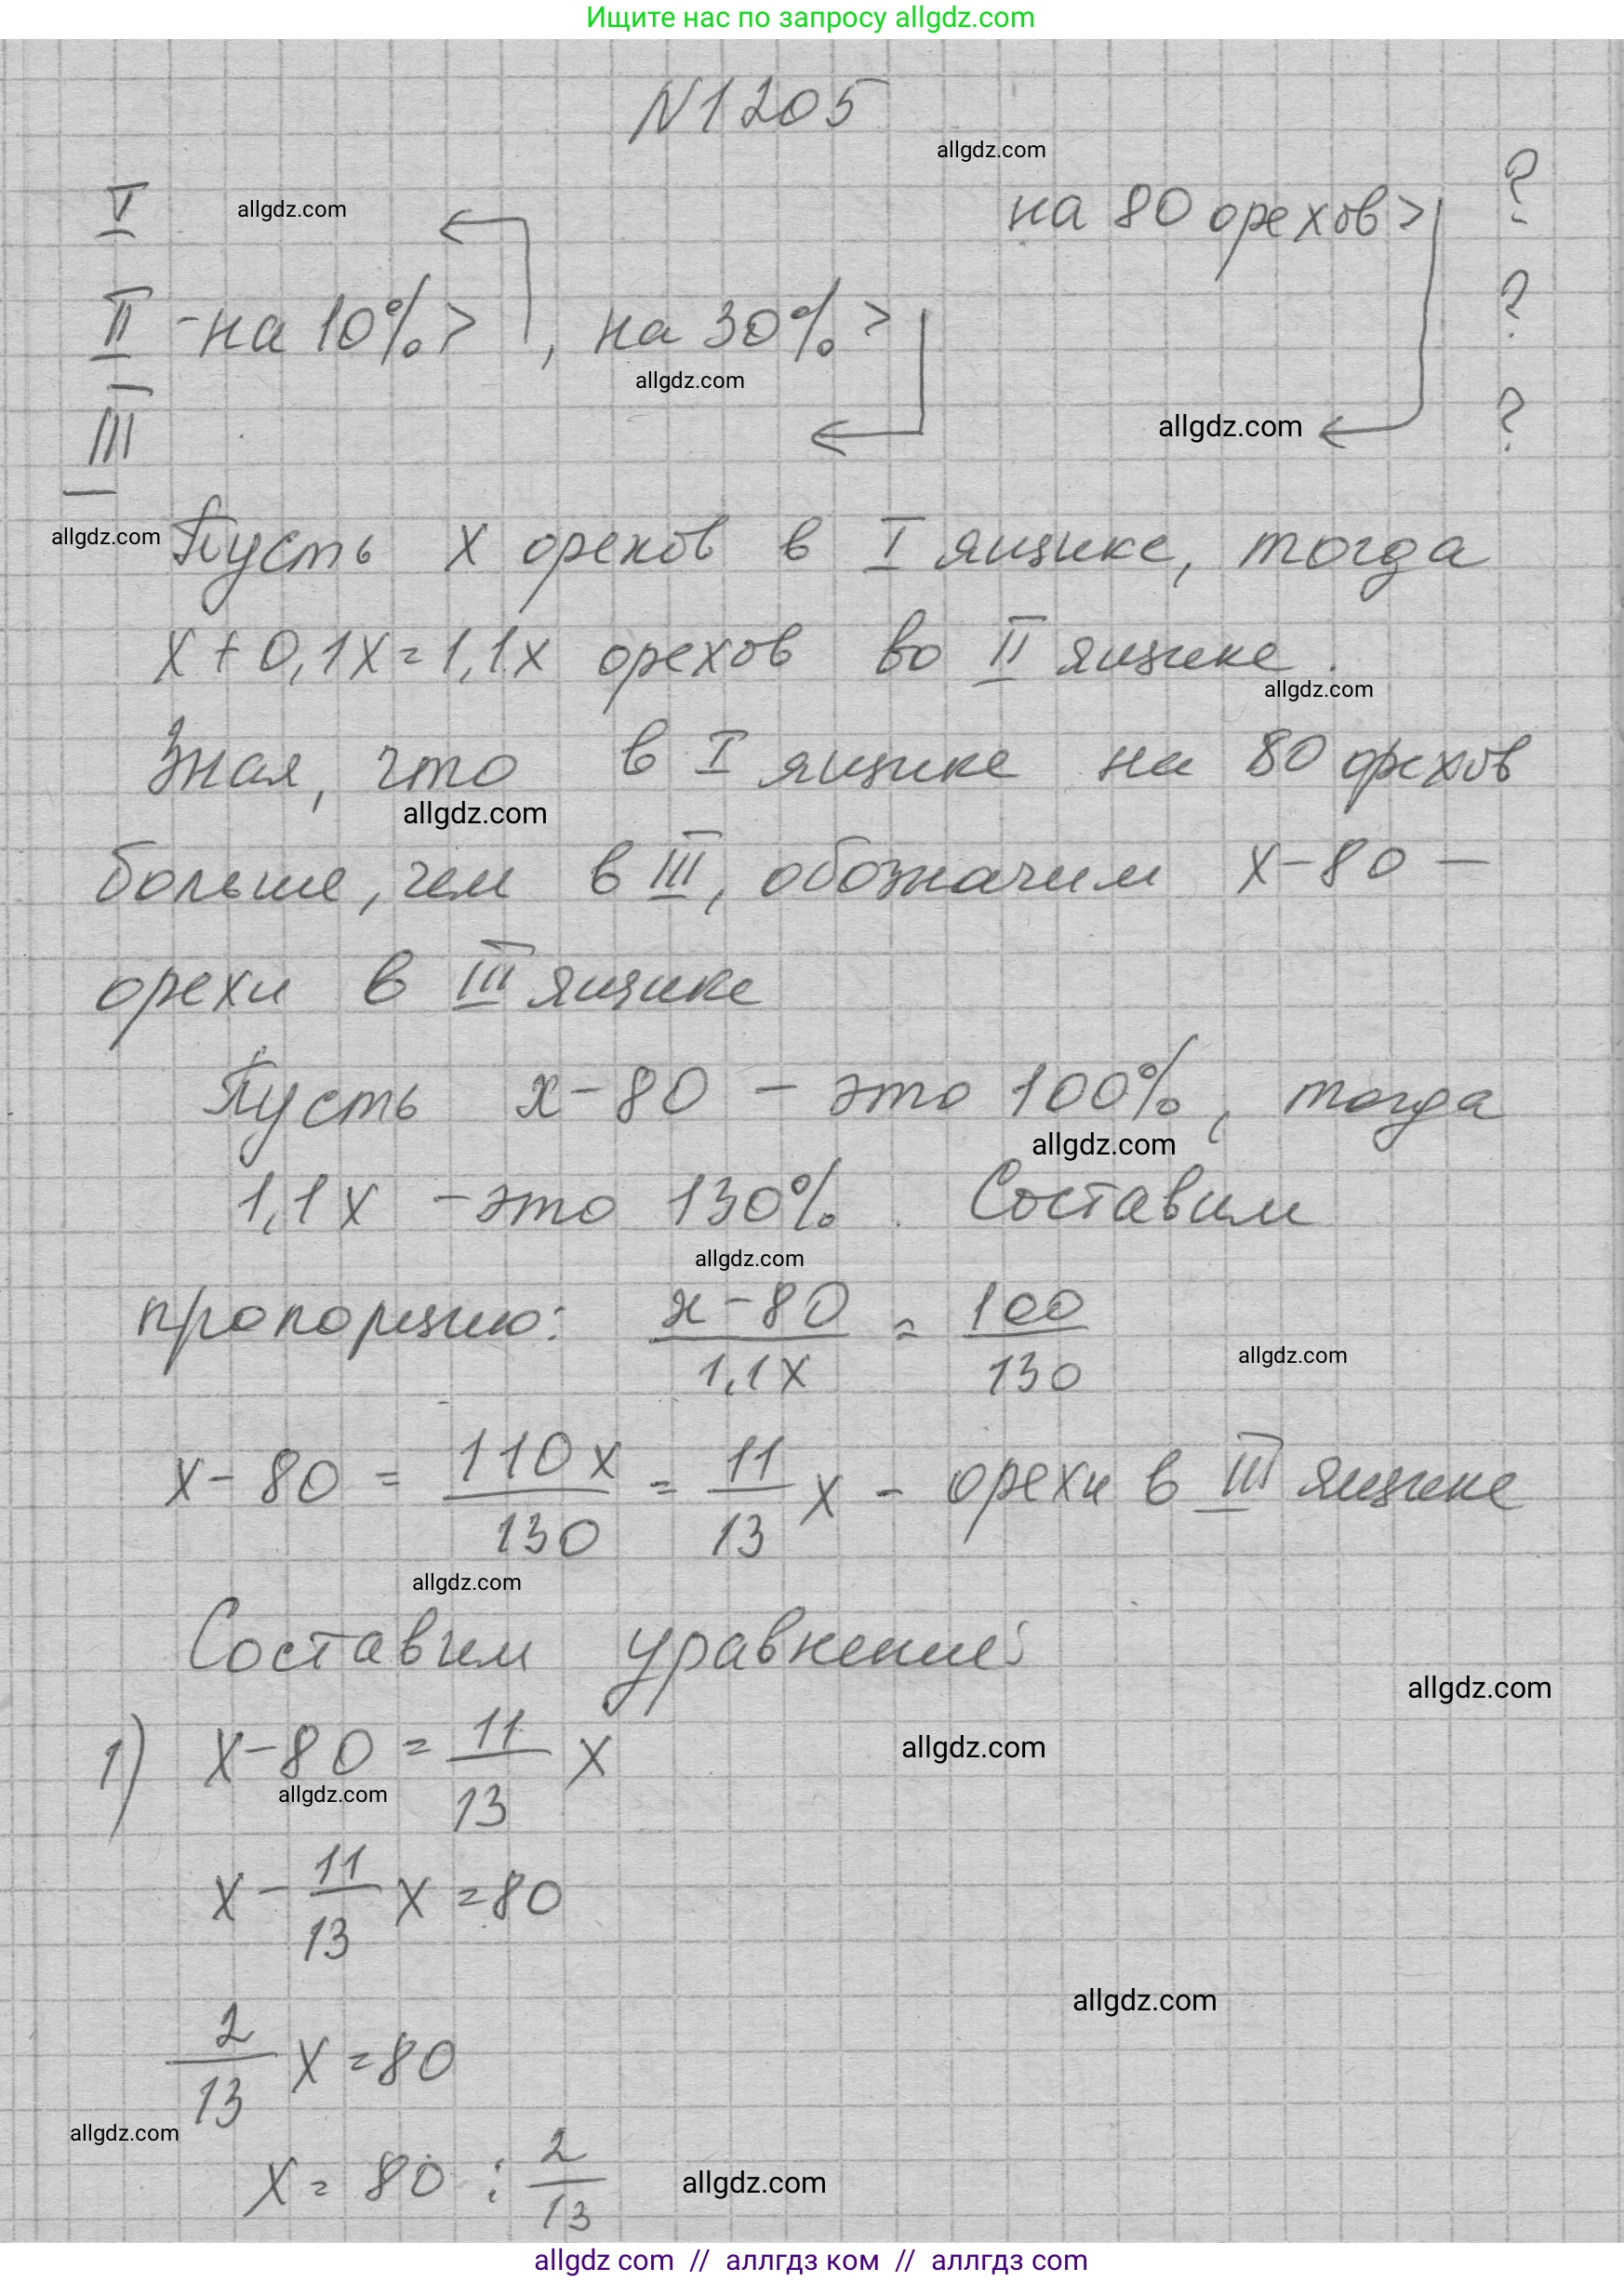 Ищите нас по запросу allgdz.com
N1205
allgdz.com
I allgdz.com на 80 орехов> ?
II -на 10%>, на 30%> ?
allgdz.com
III allgdz.com ?
allgdz.com Пусть x орехов в I ящике, тогда
x+0,1x=1,1x орехов во II ящике.
allgdz.com
Зная, что в I ящике на 80 орехов
allgdz.com
больше, чем в III, обозначим x-80 —
орехи в III ящике
Пусть x-80 - это 100%, тогда
allgdz.com
1,1x - это 130%. Составим
allgdz.com
пропорцию: x-80/1,1x = 100/130
allgdz.com
x-80 = 110x/130 = 11/13 x - орехи в III ящике
allgdz.com
Составим уравнение:
allgdz.com
1) x-80=11/13 x
allgdz.com
allgdz.com
x-11/13 x=80
allgdz.com
2/13 x=80
allgdz.com
x=80:2/13
allgdz.com
allgdz com // аллгдз ком // аллгдз com